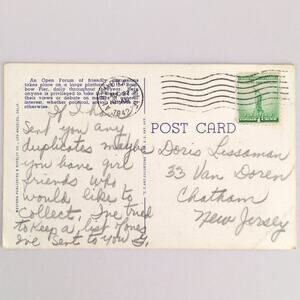 An Open Forum of friendly
takes place on a large platform
bow Pier, daily throughout the year. Here
anyone is privileged to take the
their views or debate on matters of
interest, whether political,
If I have
Sent you any
duplicates maybe
you have girl
friends who
would like to
collect. I've tried
to keep a list of ones
I've sent to you
1942
POST CARD
Doris Lussaman
33 Van Doren
Chatham
New Jersey